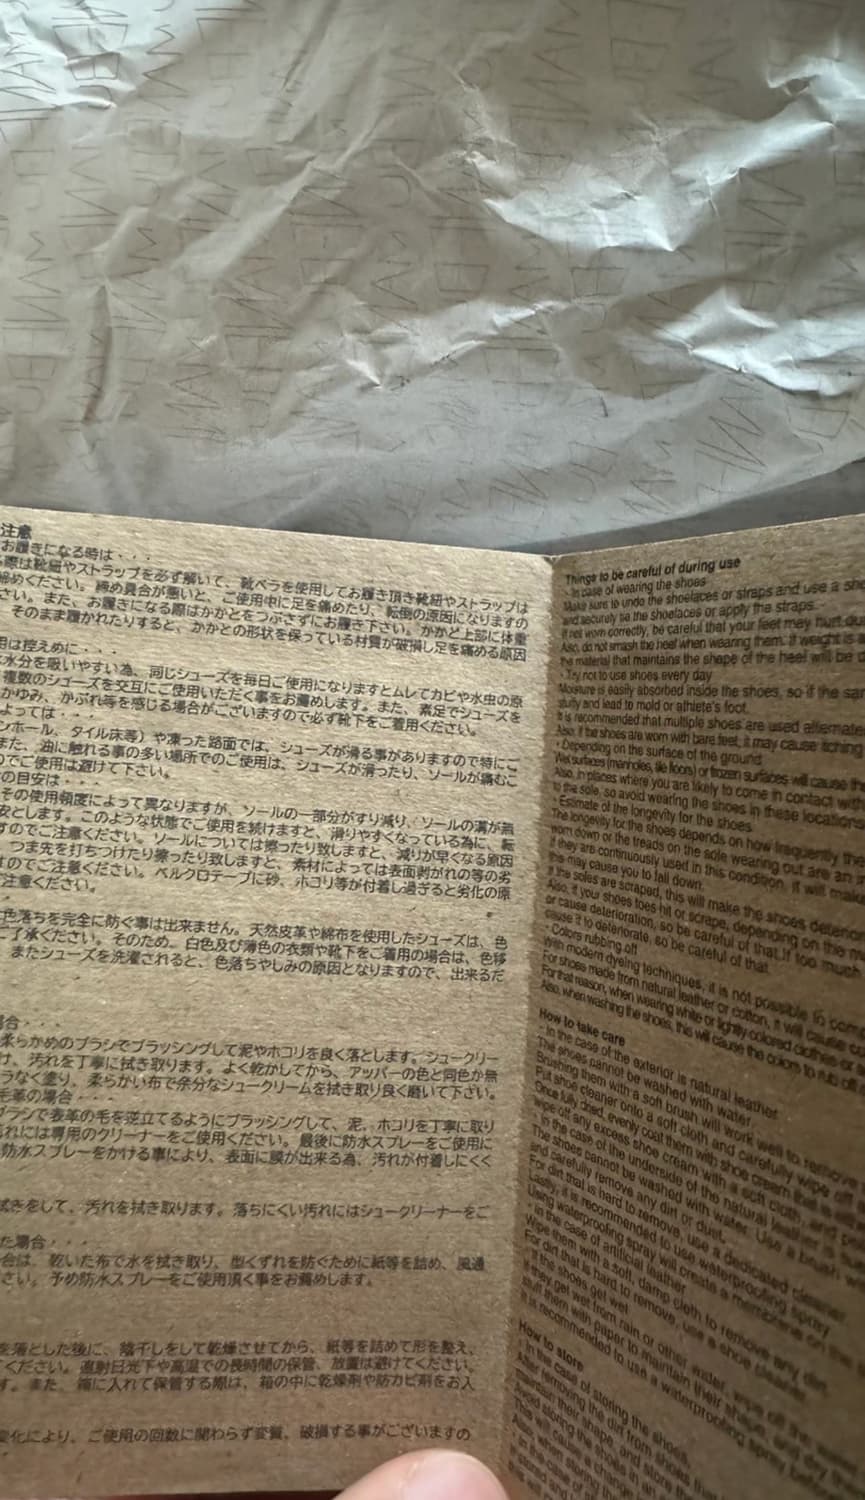 注意
お履きになる時は・・・
際は靴紐やストラップを必ず解いて、靴ベラを使用してお履き頂き靴紐やストラップは
締めください。締め具合が悪いと、ご使用中に足を痛めたり、転倒の原因になりますの
さい。また、お履きになる際はかかとをつぶさずにお履き下さい。かかと上部に体重
そのまま履かれたりすると、かかとの形状を保っている材質が破損し足を痛める原因
用は控えめに・・・
水分を吸いやすい為、同じシューズを毎日ご使用になりますとムレてカビや水虫の原
複数のシューズを交互にご使用いただく事をお薦めします。また、素足でシューズを
かゆみ、かぶれ等を感じる場合がございますので必ず靴下をご着用ください。
よっては・・・
ンホール、タイル床等）や凍った路面では、シューズが滑る事がありますので特にご
また、油に触れる事の多い場所でのご使用は、シューズが滑ったり、ソールが痛むこ
のでご使用は避けて下さい。
の目安は・・・
その使用頻度によって異なりますが、ソールの一部分がすり減り、ソールの溝が無
安とします。このような状態でご使用を続けますと、滑りやすくなっている為に、転
すのでご注意ください。ソールについては擦ったり致しますと、減りが早くなる原因
つま先を打ちつけたり擦ったり致しますと、素材によっては表面剥がれの等の劣
すのでご注意ください。ベルクロテープに砂、ホコリ等が付着し過ぎると劣化の原
注意ください。
色落ちを完全に防ぐ事は出来ません。天然皮革や綿布を使用したシューズは、色
ご了承ください。そのため、白色及び薄色の衣類や靴下をご着用の場合は、色移
またシューズを洗濯されると、色落ちやしみの原因となりますので、出来るだ
場合・・・
柔らかめのブラシでブラッシングして泥やホコリを良く落とします。シュークリー
け、汚れを丁寧に拭き取ります。よく乾かしてから、アッパーの色と同色か無
うなく塗り、柔らかい布で余分なシュークリームを拭き取り良く磨いて下さい。
毛革の場合・・・
ブラシで表革の毛を逆立てるようにブラッシングして、泥、ホコリを丁寧に取り
汚れには専用のクリーナーをご使用ください。最後に防水スプレーをご使用に
防水スプレーをかける事により、表面に膜が出来る為、汚れが付着しにくく
拭きをして、汚れを拭き取ります。落ちにくい汚れにはシュークリーナーをご
た場合・・・
合は、乾いた布で水を拭き取り、型くずれを防ぐために紙等を詰め、風通
さい。予め防水スプレーをご使用頂く事をお薦めします。
を落とした後に、陰干しをして乾燥させてから、紙等を詰めて形を整え、
ください。直射日光下や高温での長時間の保管、放置は避けてください。
す。また、箱に入れて保管する際は、箱の中に乾燥剤や防カビ剤をお入
変化により、ご使用の回数に関わらず変質、破損する事がございますの
Things to be careful of during use
・In case of wearing the shoes
Make sure to undo the shoelaces or straps and use a sho
and securely tie the shoelaces or apply the straps.
If not worn correctly, be careful that your feet may hurt dur
Also, do not smash the heel when wearing them. If weight is
the material that maintains the shape of the heel will be d
・Try not to use shoes every day
Moisture is easily absorbed inside the shoes, so if the sam
stuffy and lead to mold or athlete's foot.
It is recommended that multiple shoes are used alternate
Also, if the shoes are worn with bare feet, it may cause itching
・Depending on the surface of the ground
Wet surfaces (manholes, tile floors) or frozen surfaces will cause the
Also, in places where you are likely to come in contact with
to the sole, so avoid wearing the shoes in these locations
・Estimate of the longevity for the shoes
The longevity for the shoes depends on how frequently the
worn down or the treads on the sole wearing out are an in
If they are continuously used in this condition, it will make
this may cause you to fall down.
If the soles are scraped, this will make the shoes deterior
Also, if your shoes hit or scrape, depending on the m
or cause deterioration, so be careful of that. If too much
cause it to deteriorate, so be careful of that.
・Colors rubbing off
With modern dyeing techniques, it is not possible to com
For shoes made from natural leather or cotton, it will cause co
For that reason, when wearing white or lightly colored clothes or s
Also, when washing the shoes, this will cause the colors to rub off
How to take care
・In the case of the exterior is natural leather
The shoes cannot be washed with water.
Brushing them with a soft brush will work well to remove
Put shoe cleaner onto a soft cloth and carefully wipe off
Once fully dried, evenly coat them with shoe cream that is
wipe off any excess shoe cream with a soft cloth, and
・In the case of the underside of the natural leather is
The shoes cannot be washed with water. Use a brush
and carefully remove any dirt or dust.
For dirt that is hard to remove, use a dedicated cleaner
Lastly, it is recommended to use waterproofing spray
Using waterproofing spray will create a membrane on the
・In the case of artificial leather
Wipe them with a soft, damp cloth to remove any dirt.
For dirt that is hard to remove, use a shoe cleaner.
・If the shoes get wet
If they get wet from rain or other water, wipe off the
stuff them with paper to maintain their shape, and dry
It is recommended to use a waterproofing spray before
How to store
・In the case of storing the shoes
After removing the dirt from shoes
maintain their shape, and store
Avoid storing the shoes in an
This will cause a change in
Also, when storing the